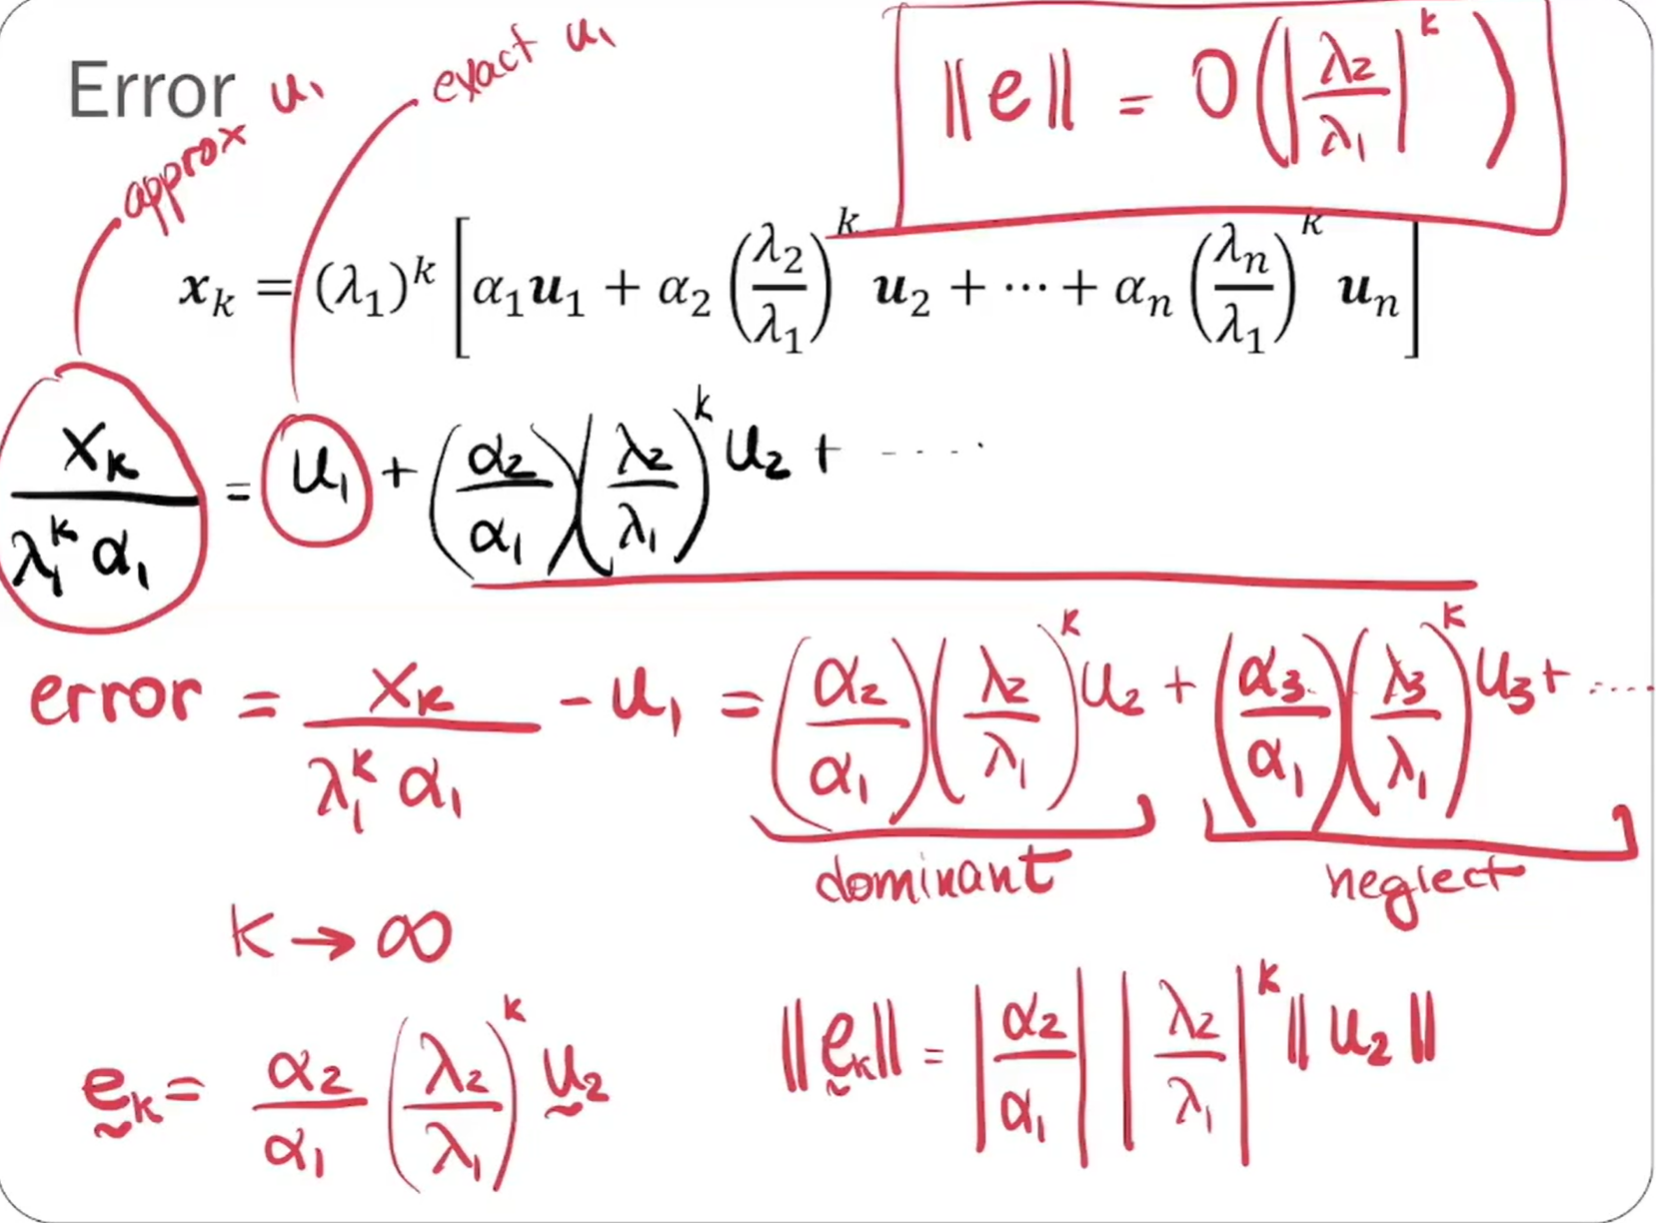 Error
approx u₁
exact u₁
||e|| = O(|λ₂/λ₁|^k)
𝒙ₖ = (λ₁)^k [α₁𝒖₁ + α₂ (λ₂/λ₁)^k 𝒖₂ + ⋯ + αₙ (λₙ/λ₁)^k 𝒖ₙ]
xₖ/(λ₁^k α₁) = u₁ + (α₂/α₁)(λ₂/λ₁)^k u₂ + ....
error = xₖ/(λ₁^k α₁) - u₁ = (α₂/α₁)(λ₂/λ₁)^k u₂ + (α₃/α₁)(λ₃/λ₁)^k u₃ + ....
dominant
neglect
k → ∞
eₖ = α₂/α₁ (λ₂/λ₁)^k u₂
||eₖ|| = |α₂/α₁| |λ₂/λ₁|^k ||u₂||